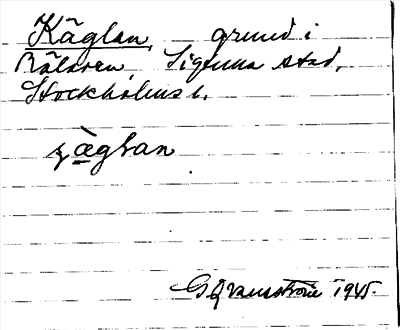 Käglan, grund i
Mälaren, Sigtuna stad,
Stockholms l.
GGranström 1945